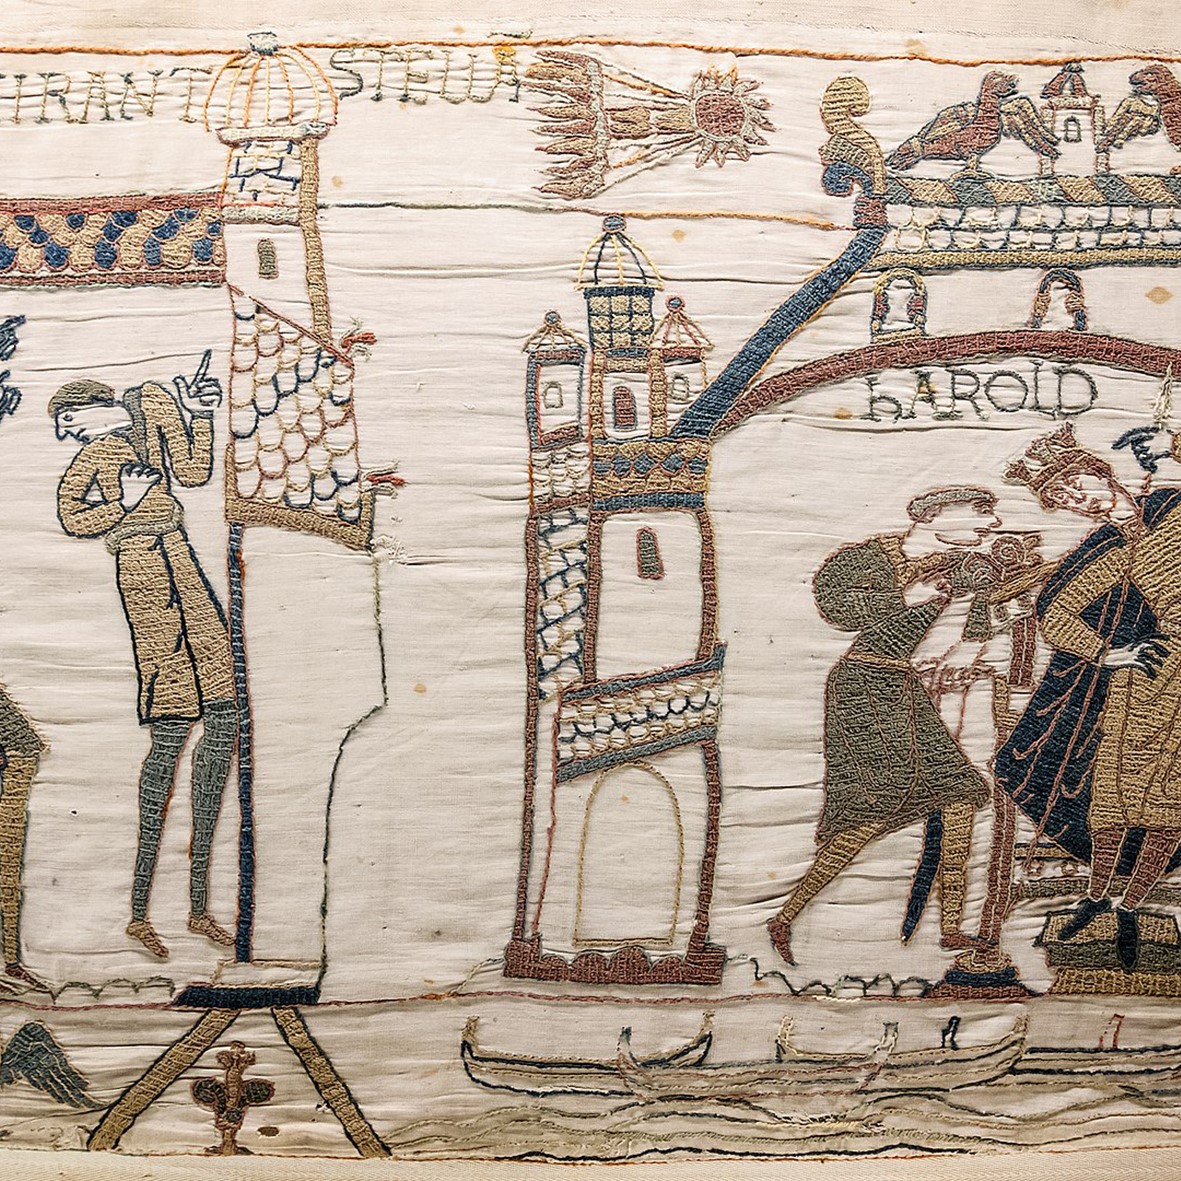 MIRANT STELLA
hAROLD